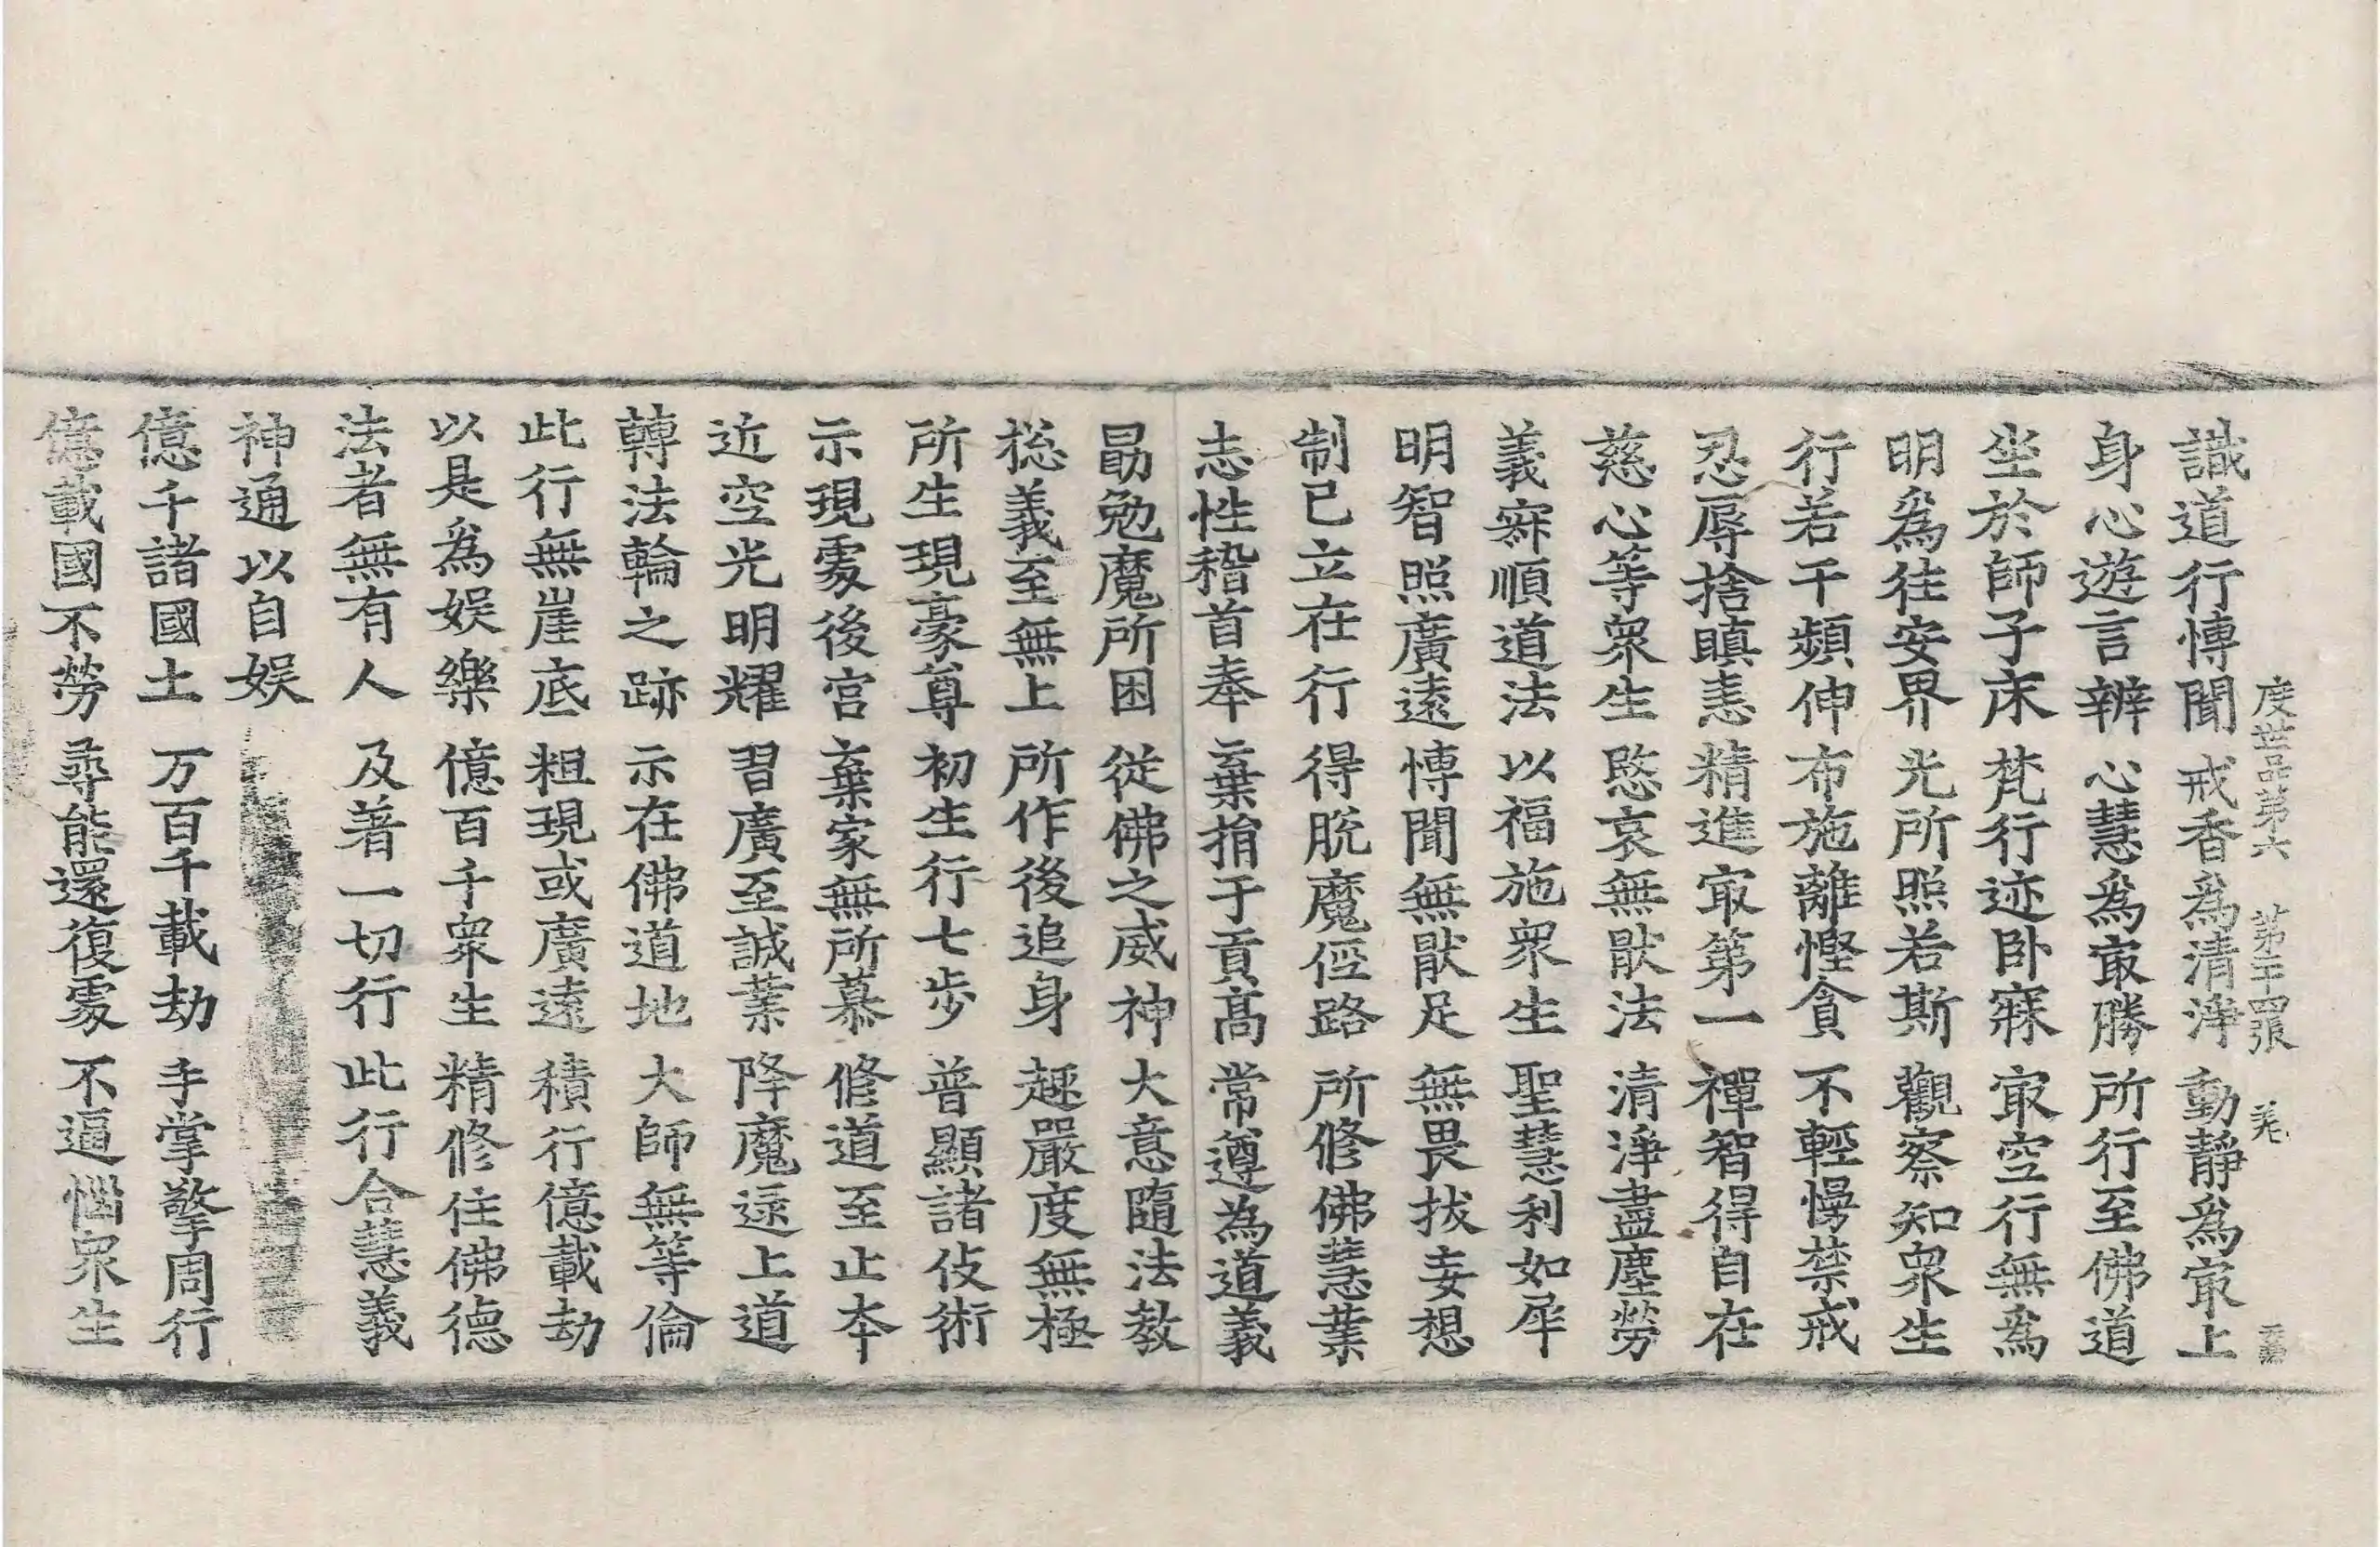 度世品第六　第二十四張　羌
識道行愽聞　戒香爲清淨　動靜爲㝡上
身心遊言辨　心慧爲㝡勝　所行至佛道
坐於師子床　梵行迹卧寐　㝡空行無爲
明爲往安界　光所照若斯　觀察知衆生
行若干頻伸　布施離慳貪　不輕慢禁戒
忍辱捨瞋恚　精進㝡第一　禪智得自在
慈心等衆生　愍哀無猒法　清淨盡塵勞
義寂順道法　以福施衆生　聖慧利如犀
明智照廣遠　愽聞無猒足　無畏拔妄想
制已立在行　得脫魔徑路　所修佛慧業
志性稽首奉　棄捐于貢高　常遵為道義
勗勉魔所困　從佛之威神　大意隨法教
捴義至無上　所作後追身　趣嚴度無極
所生現豪尊　初生行七步　普顯諸伎術
示現䖏後宮　棄家無所慕　修道至止本
近空光明耀　習廣至誠業　降魔逮上道
轉法輪之跡　示在佛道地　大師無等倫
此行無崖底　粗現或廣遠　積行億載劫
以是爲娛樂　億百千衆生　精修住佛德
法者無有人　及著一切行　此行合慧義
神通以自娛
億千諸國土　万百千載劫　手掌擎周行
億載國不勞　尋能還復䖏　不逼惱衆生